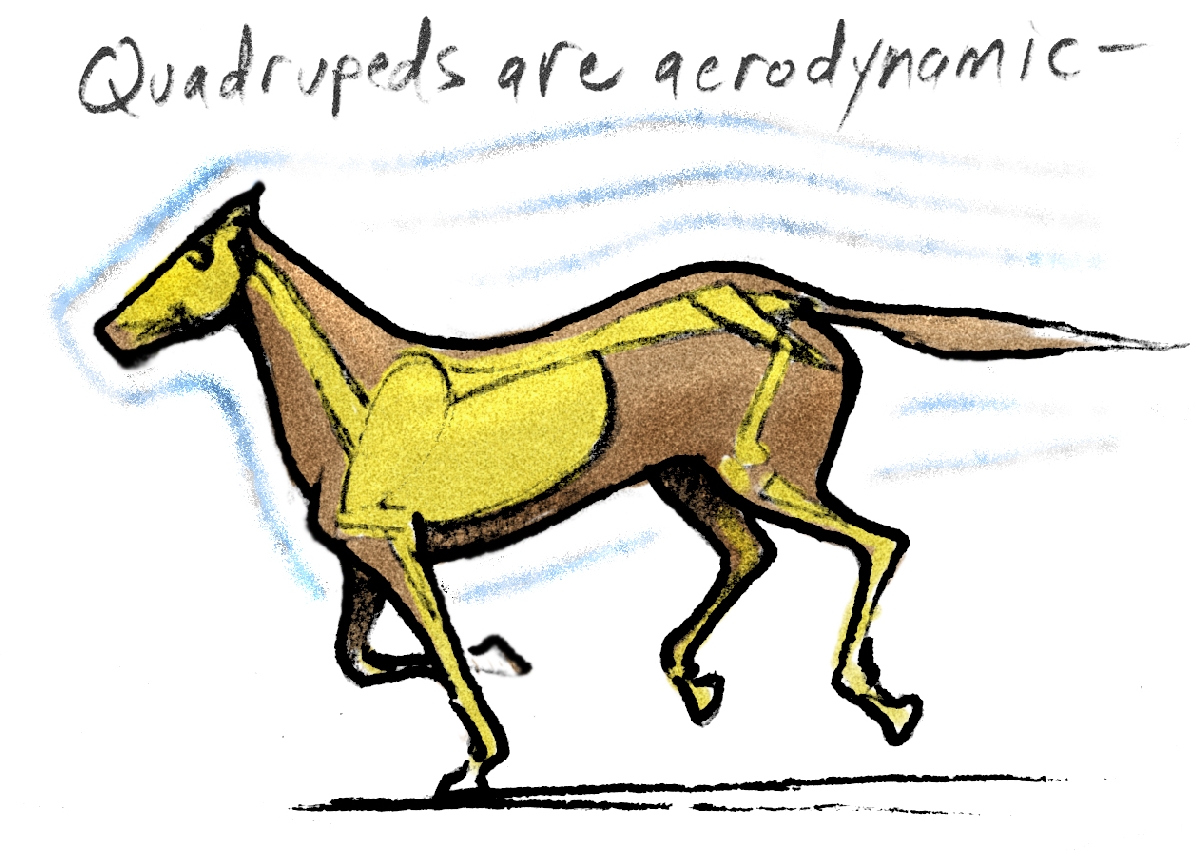 Quadrupeds are aerodynamic-